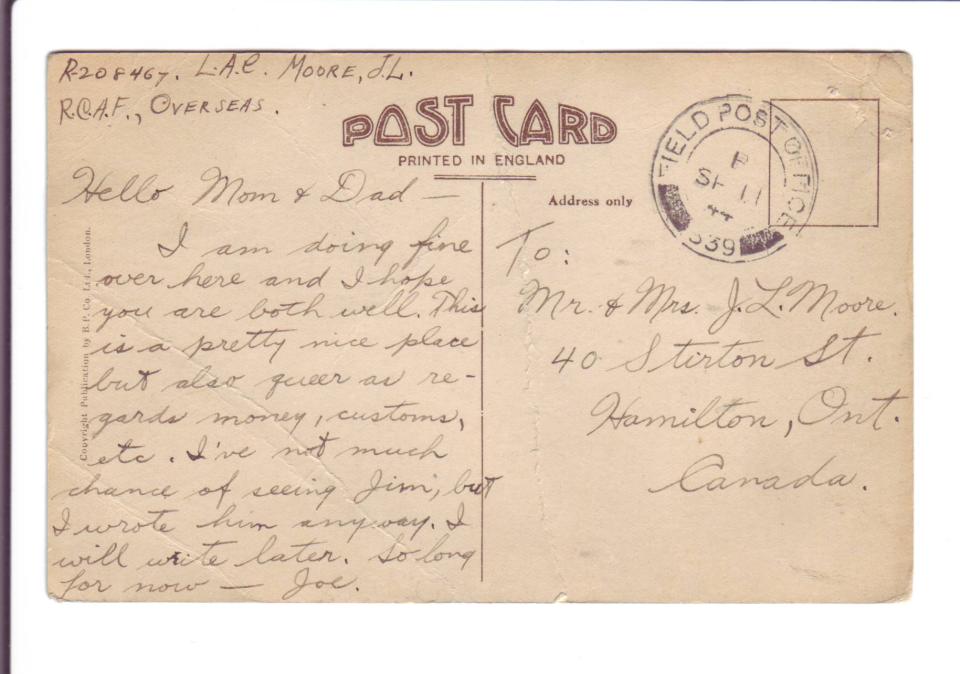 R-208467. L.A.C. MOORE, J.L.
R.C.A.F., OVERSEAS.
POST CARD
PRINTED IN ENGLAND
Address only
FIELD POST OFFICE
11
44
539
Copyright Publication by B.P. Co. Ltd., London.
Hello Mom & Dad —
I am doing fine
over here and I hope
you are both well. This
is a pretty nice place
but also queer as re-
gards money, customs,
etc. I've not much
chance of seeing Jim, but
I wrote him anyway. I
will write later. So long
for now — Joe.
To:
Mr. & Mrs. J. L. Moore.
40 Stirton St.
Hamilton, Ont.
Canada.